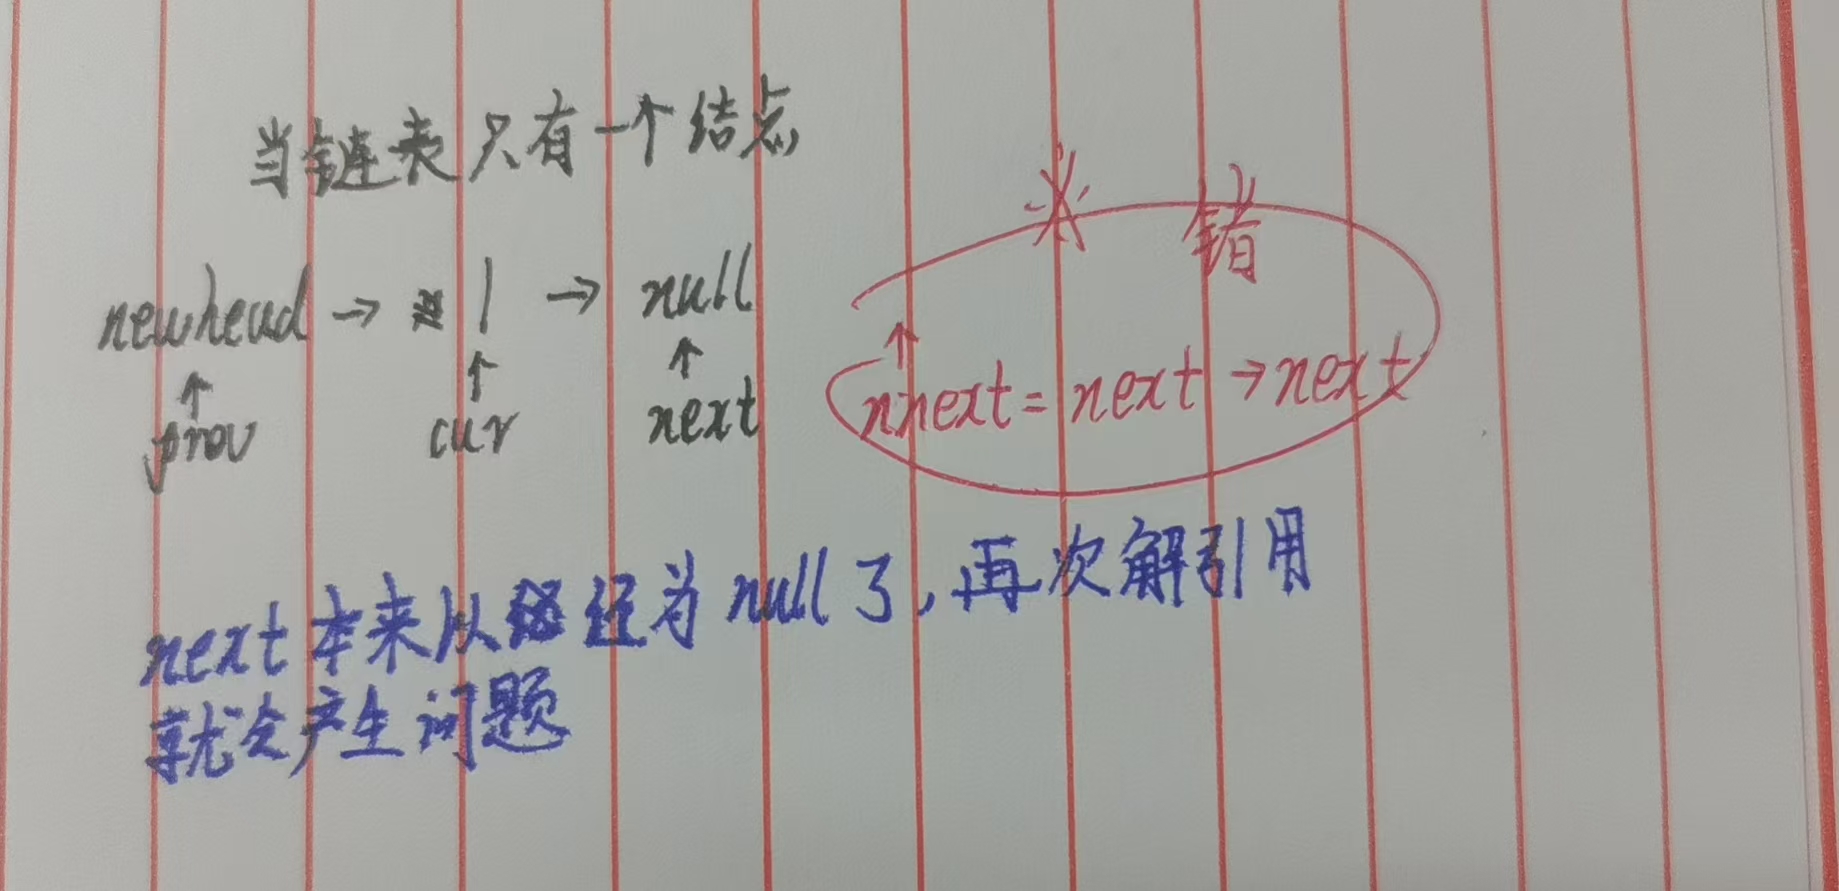 当链表只有一个结点
错
newhead → 1 → null
↑ ↑ ↑ ↑
prev cur next nnext = next → next
next本来以经为null了，再次解引用
就会产生问题